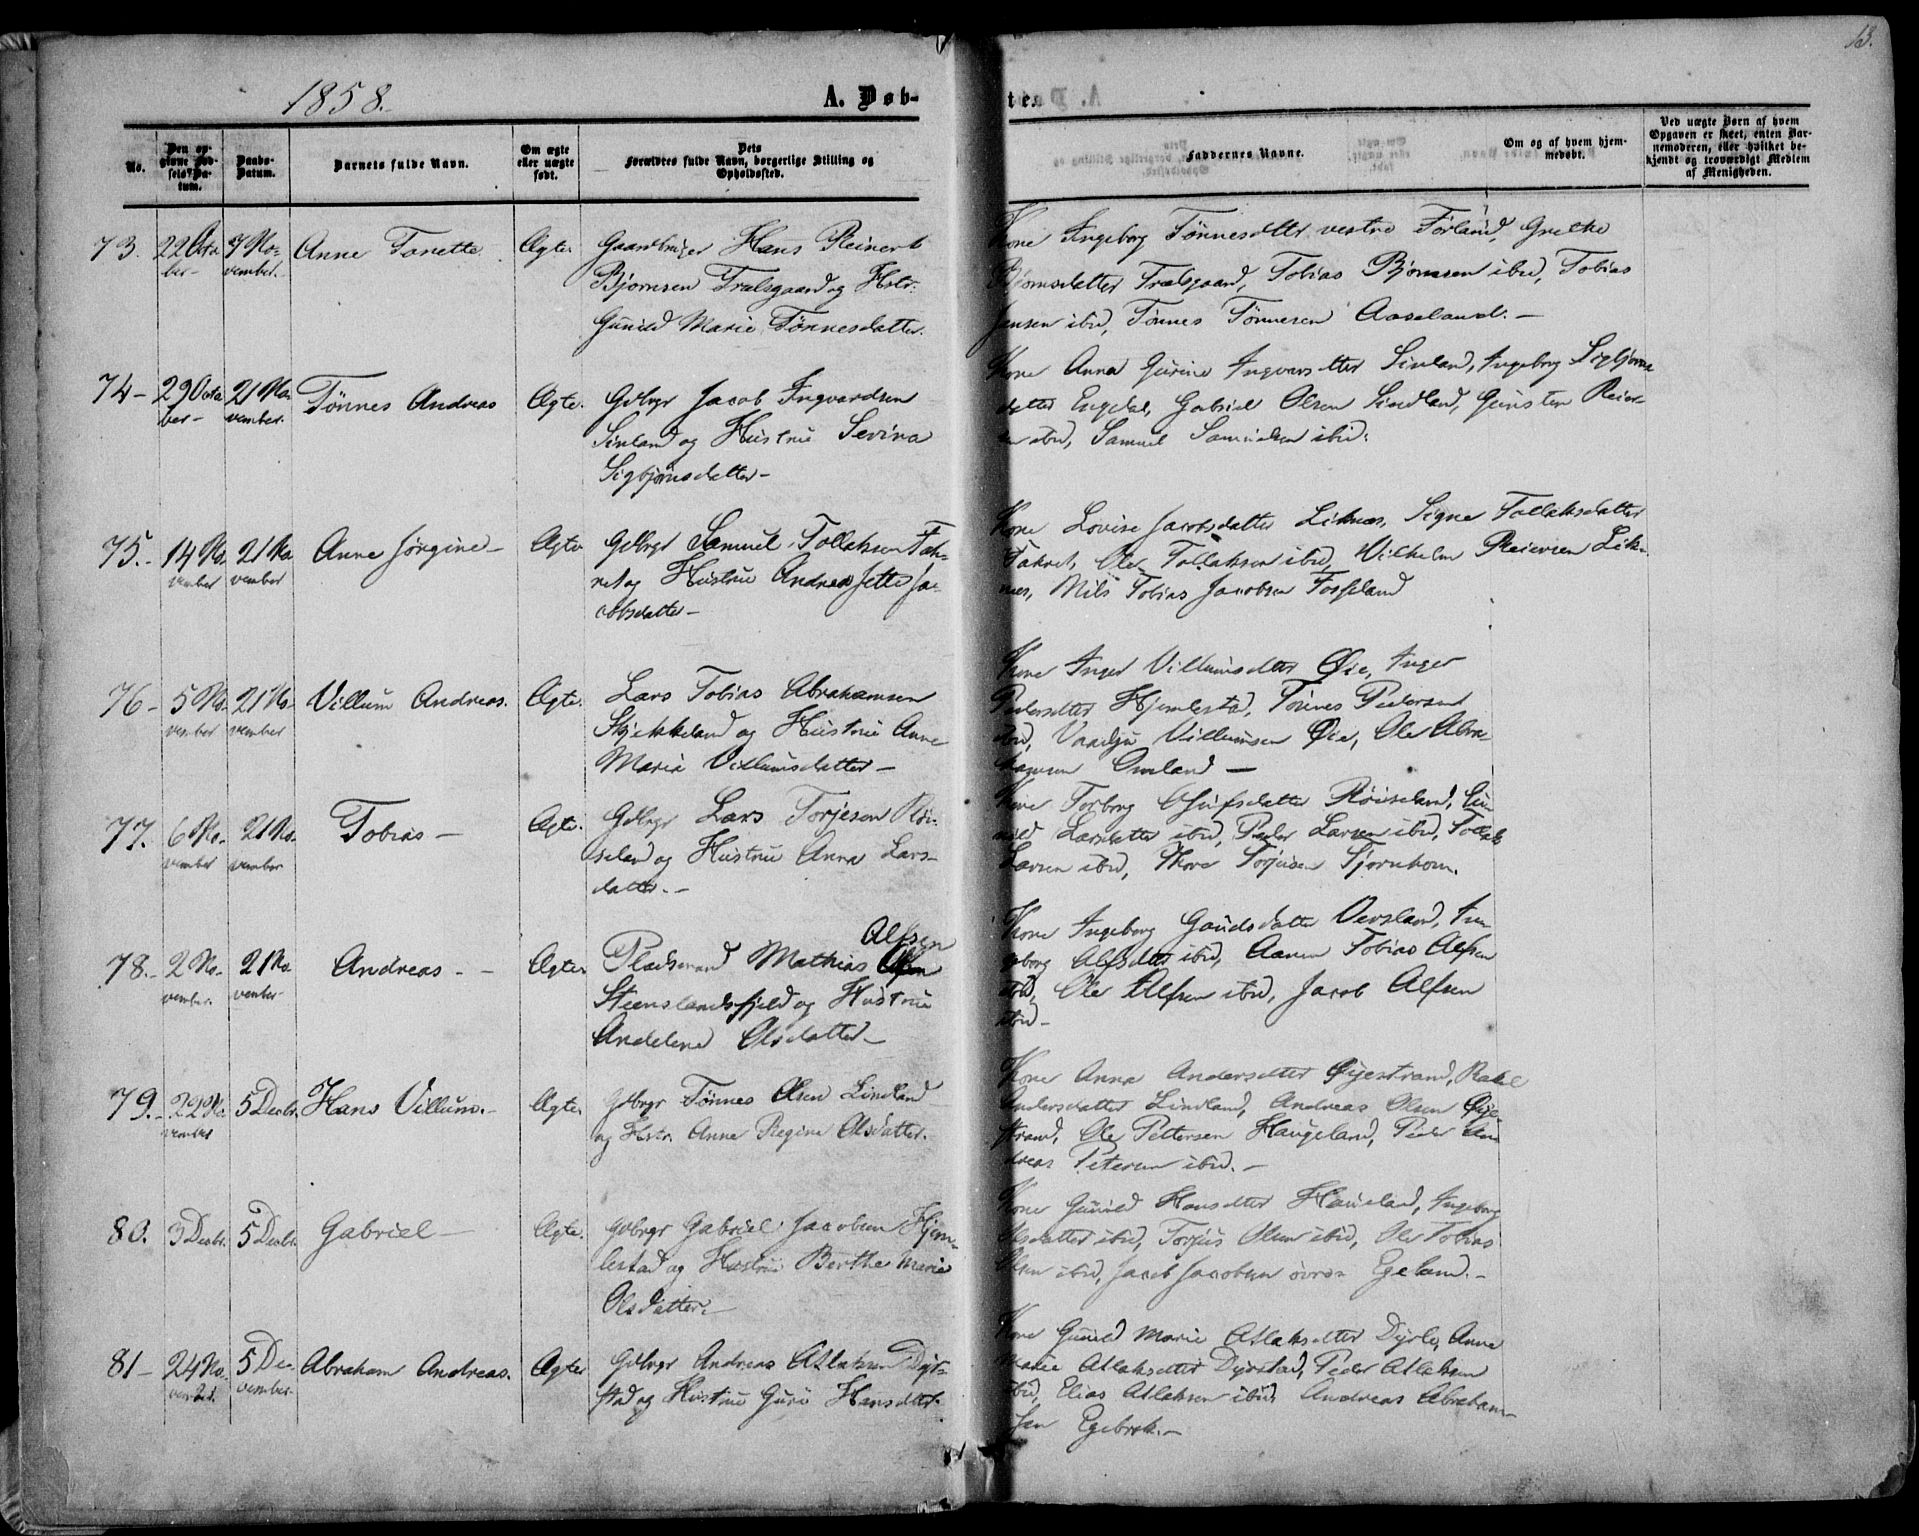 13.
1858.
A. Døb-
te.
No.
Den opgivne Fødsels-Datum.
Daabs-Datum.
Barnets fulde Navn.
Om ægte eller uægte født.
Dets Forældres fulde Navn, borgerlige Stilling og Opholdssted.
Faddernes Navne.
Om og af hvem hjemmedøbt.
Ved uægte Børn af hvem Opgaven er skeet, enten Barnemoderen, eller hvilket bekjendt og troværdigt Medlem af Menigheden.
73. 22 Octo- 7 No- Anne Tonette. Ægte. Gaardbruger Hans Reinert
ber- vember. Bjørnsen Trælsgaard og Hstr.
Gunild Marie Tønnesdatter.
Kone Ingeborg Tønnesdttr vestre Førland, Grethe
Bjørnsdatter Trælsgaard, Tobias Bjørnsen ibid, Tobias
Jensen ibid, Tønnes Tønnesen Aaseland.-
74- 29 Octo 21 No- Tønnes Andreas Ægte. Gdbrgr Jacob Ingvardsen
ber- vember. Sinland og Hustrue Sevina
Sigbjørnsdatter-
Kone Anna Gurine Ingvarsdtter Sinland, Ingeborg Sigbjørns
datter Engedal, Gabriel Olsen Sindland, Gunsten Reier-
sen ibid, Samuel Samuelsen ibid.
75.- 14 No. 21 No Anne Jørgine- Ægte Gdbrgr Samuel Tollaksen Fak-
vember vember ret og Hustrue Andrea Jette Ja-
cobsdatter-
Kone Lovise Jacobsdatter Liknæs, Signe Tollaksdatter
Fakret, Ole Tollaksen ibid, Vilhelm Reiersen Lik-
næs, Nils Tobias Jacobsen Fosseland
76- 5 No. 21 No. Villum Andreas. Ægte. Lars Tobias Abrahamsen
vember vember Skjekkeland og Hustrue Anne
Maria Villumsdatter-
Kone Inger Villumsdtter Øie, Inger
Pedersdtter Hjemlestad, Tønnes Pedersen
ibid, Villumsen Øie, Ole Abra-
hamsen Omland -
77. 6 No. 21 No. Tobias- Ægte. Gdbrgr Lars Torjesen Røi-
vember vember seland og Hustrue Anna Lars-
datter.-
Kone Torborg datter Røiseland, Gu-
nild Larsdatter ibid, Peder Larsen ibid, Tollak
Larsen ibid, Thore Torjusen Tjørnhom.
78.- 2 No. 21 No Andreas.- - Ægte. Pladsmand Mathias Alfsen
vember. vember Steenslandsfjeld og Hustrue
Andelena Olsdatter-
Kone Ingeborg Datter Versland, In-
geborg Alfsdtter ibid, Aanen Tobias Alfsen
ibid, Ole Alfsen ibid, Jacob Alfsen
ibid-
79.- 22 No. 5 Decbr. Hans Villum.- Ægte. Gdbrgr Tønnes Olsen Lindland
vember og Hstr. Anne Regine Olsdatter.
Kone Anna Andersdtter Øijestrand, Rakel
Andersdatter Lindland, Andreas Olsen Øije
strand, Ole Pettersen Haugeland, Peder An
dreas Petersen ibid.-
80. 3 Decbr. 5 Decbr. Gabriel- Ægte. Gdbrgr Gabriel Jacobsen Hjem-
lestad og Hustrue Berthe Marie
Olsdatter.-
Kone Gunild Hansdtter Haueland, Ingeborg
Olsdatter ibid, Torjus Olsen ibid, Ole Tobias
Olsen ibid, Jacob Jacobsen øvre Egeland.-
81- 24 No. 5 De- Abraham Andreas. Ægte Gdbrgr Andreas Atlaksen Dyr-
vember. vember. stad og Hustrue Guro Hansdttr.
Kone Gunild Marie Atlaksdtter Dyrli, Anne
Marie Atlaksdtter Dyrstad, Peder Atlaksen
ibid, Elias Atlaksen ibid, Andreas Abraham-
sen Egebrok.-